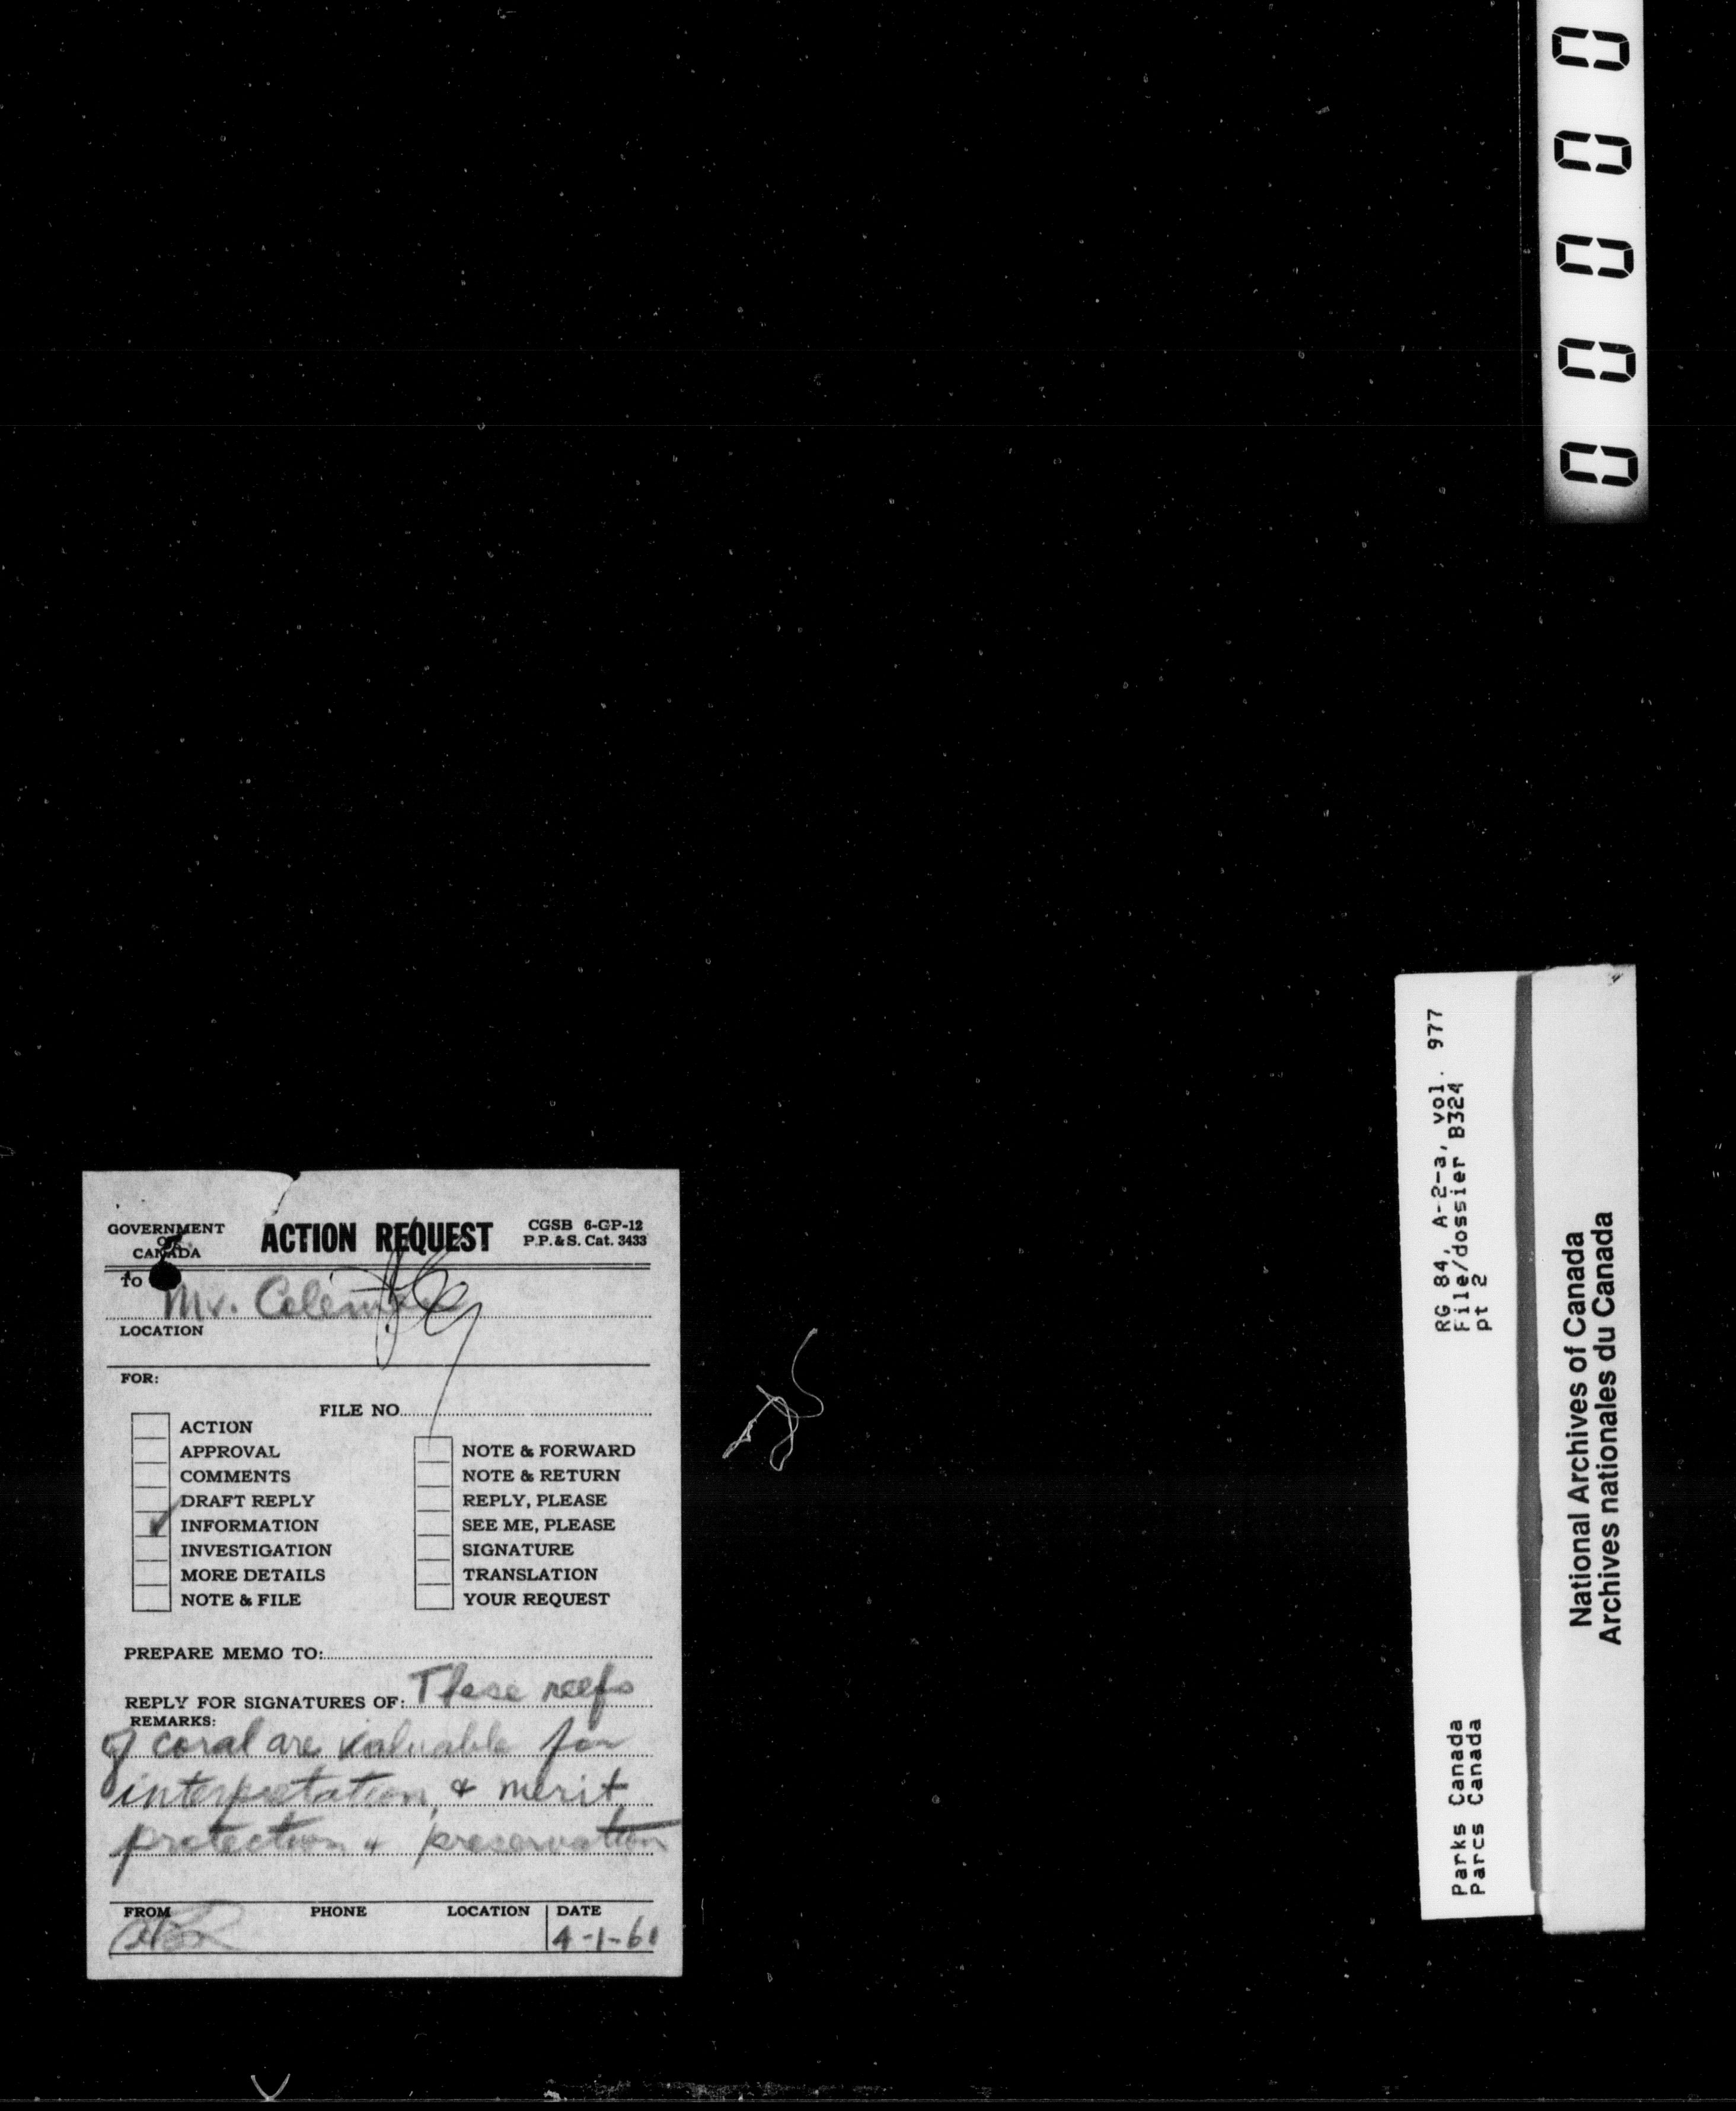 GOVERNMENT
OF
CANADA
ACTION REQUEST
CGSB 6-GP-12
P.P. & S. Cat. 3433
TO Mr. Coleman
LOCATION
FOR:
FILE NO.
ACTION
APPROVAL
COMMENTS
DRAFT REPLY
INFORMATION
INVESTIGATION
MORE DETAILS
NOTE & FILE
NOTE & FORWARD
NOTE & RETURN
REPLY, PLEASE
SEE ME, PLEASE
SIGNATURE
TRANSLATION
YOUR REQUEST
PREPARE MEMO TO:
REPLY FOR SIGNATURES OF: These reefs
REMARKS:
of coral are valuable for
interpretation & merit
protection & preservation
FROM PHONE LOCATION DATE
4-1-61
00000
RG 84, A-2-a, vol. 977
File/dossier B324
pt 2
Parks Canada
Parcs Canada
National Archives of Canada
Archives nationales du Canada